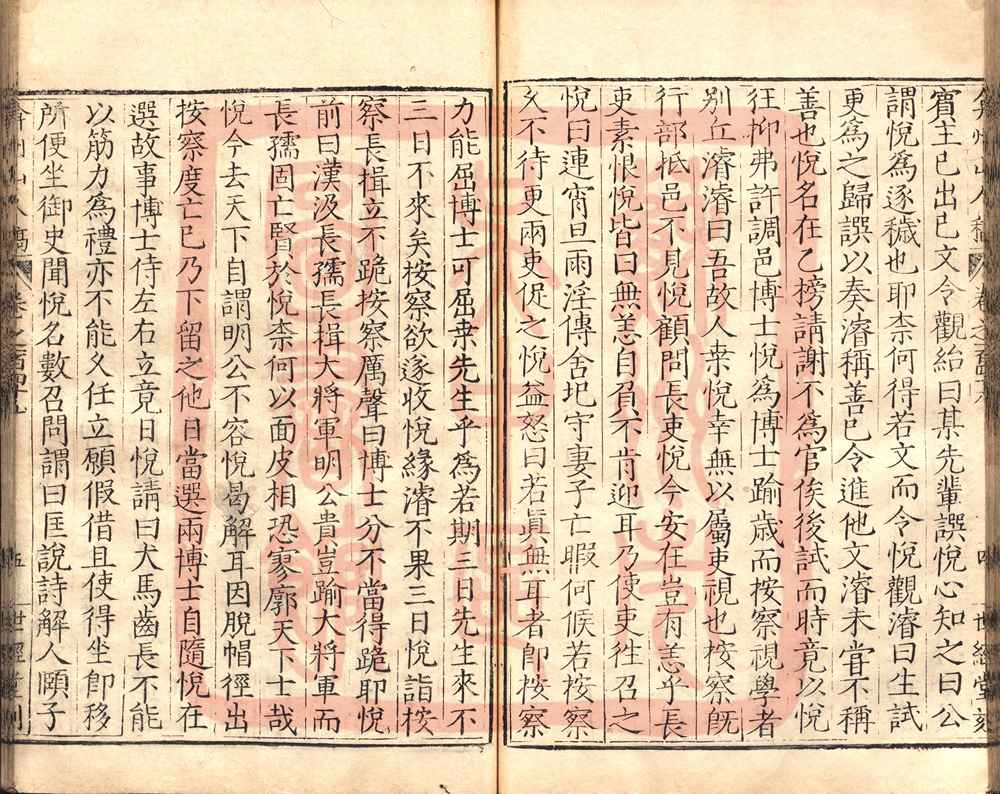 弇州山人稿 卷之一百四十九 世經堂刻
賓主已出已文令觀紿曰某先輩譔悅心知之曰公
謂悅為逐穢也耶柰何得若文而令悅觀濬曰生試
更為之歸譔以奏濬稱善已令進他文濬未嘗不稱
善也悅名在乙榜請謝不為官俟後試而時竟以悅
狂抑弗許調邑博士悅為博士踰歲而按察視學者
別丘濬濬曰吾故人桒悅幸無以屬吏視也按察既
行部抵邑不見悅顧問長吏悅今安在豈有恙乎長
吏素恨悅皆曰無恙自負不肯迎耳乃使吏徃召之
悅曰連宵旦雨淫傳舍圯守妻子亡暇何候若按察
乆不待更兩吏促之悅益怒曰若眞無耳者卽桉察
力能屈博士可屈桒先生乎為若期三日先生來不
三日不來矣桉察欲遂收悅緣濬不果三日悅詣桉
察長揖立不跪按察厲聲曰博士分不當得跪耶悅
前曰漢汲長孺長揖大將軍明公貴豈踰大將軍而
長孺固亡賢於悅柰何以面皮相恐寥廓天下士哉
悅今去天下自謂明公不容悅曷解耳因脫帽徑出
按察度亡已乃下留之他日當選兩博士自隨悅在
選故事博士侍左右立竟日悅請曰犬馬齒長不能
以筋力為禮亦不能乆任立願假借且使得坐卽移
所便坐御史聞悅名數召問謂曰匡說詩解人頤子
弇州山人稿 卷之一百四十九 五 世經堂刻